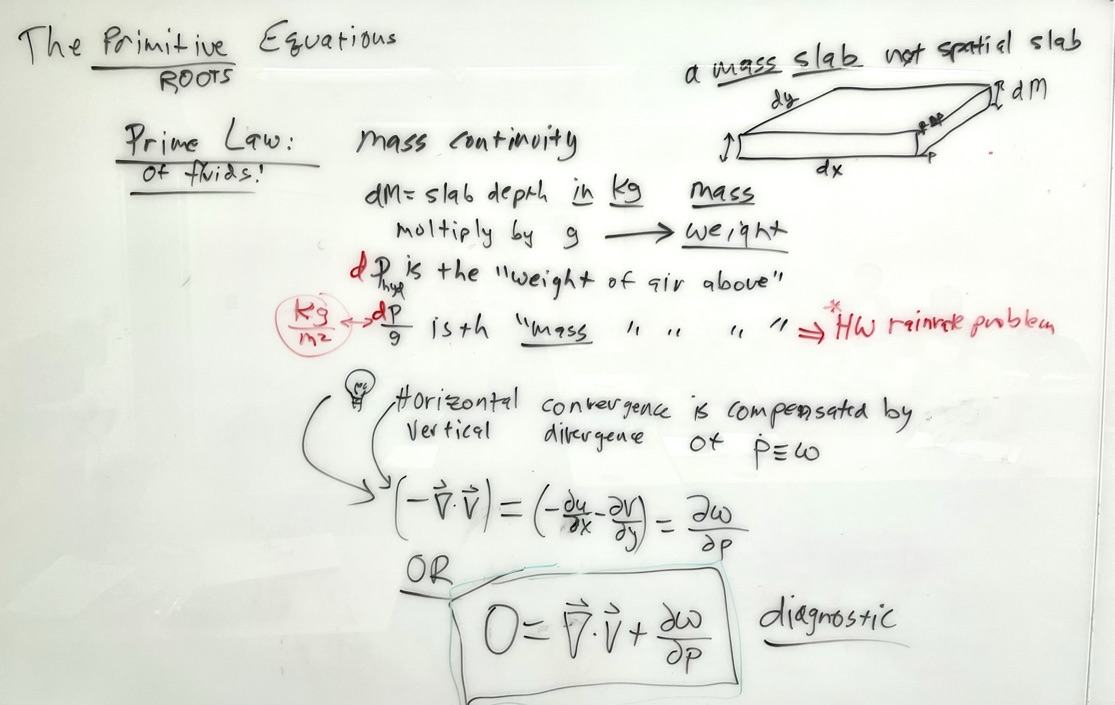 The Primitive Equations
ROOTS
a mass slab not spatial slab
dy
dM
dx
P
Prime Law: mass continuity
of fluids!
dM = slab depth in kg mass
multiply by g → weight
dPhyd is the "weight of air above"
kg/m2 ↔ dP/g is th "mass " " " " ⇒ *HW rainrate problem
Horizontal convergence is compensated by
Vertical divergence of Ṗ ≡ ω
(-∇⃗·V⃗) = (-∂u/∂x - ∂v/∂y) = ∂ω/∂p
OR
0 = ∇⃗·V⃗ + ∂ω/∂p diagnostic